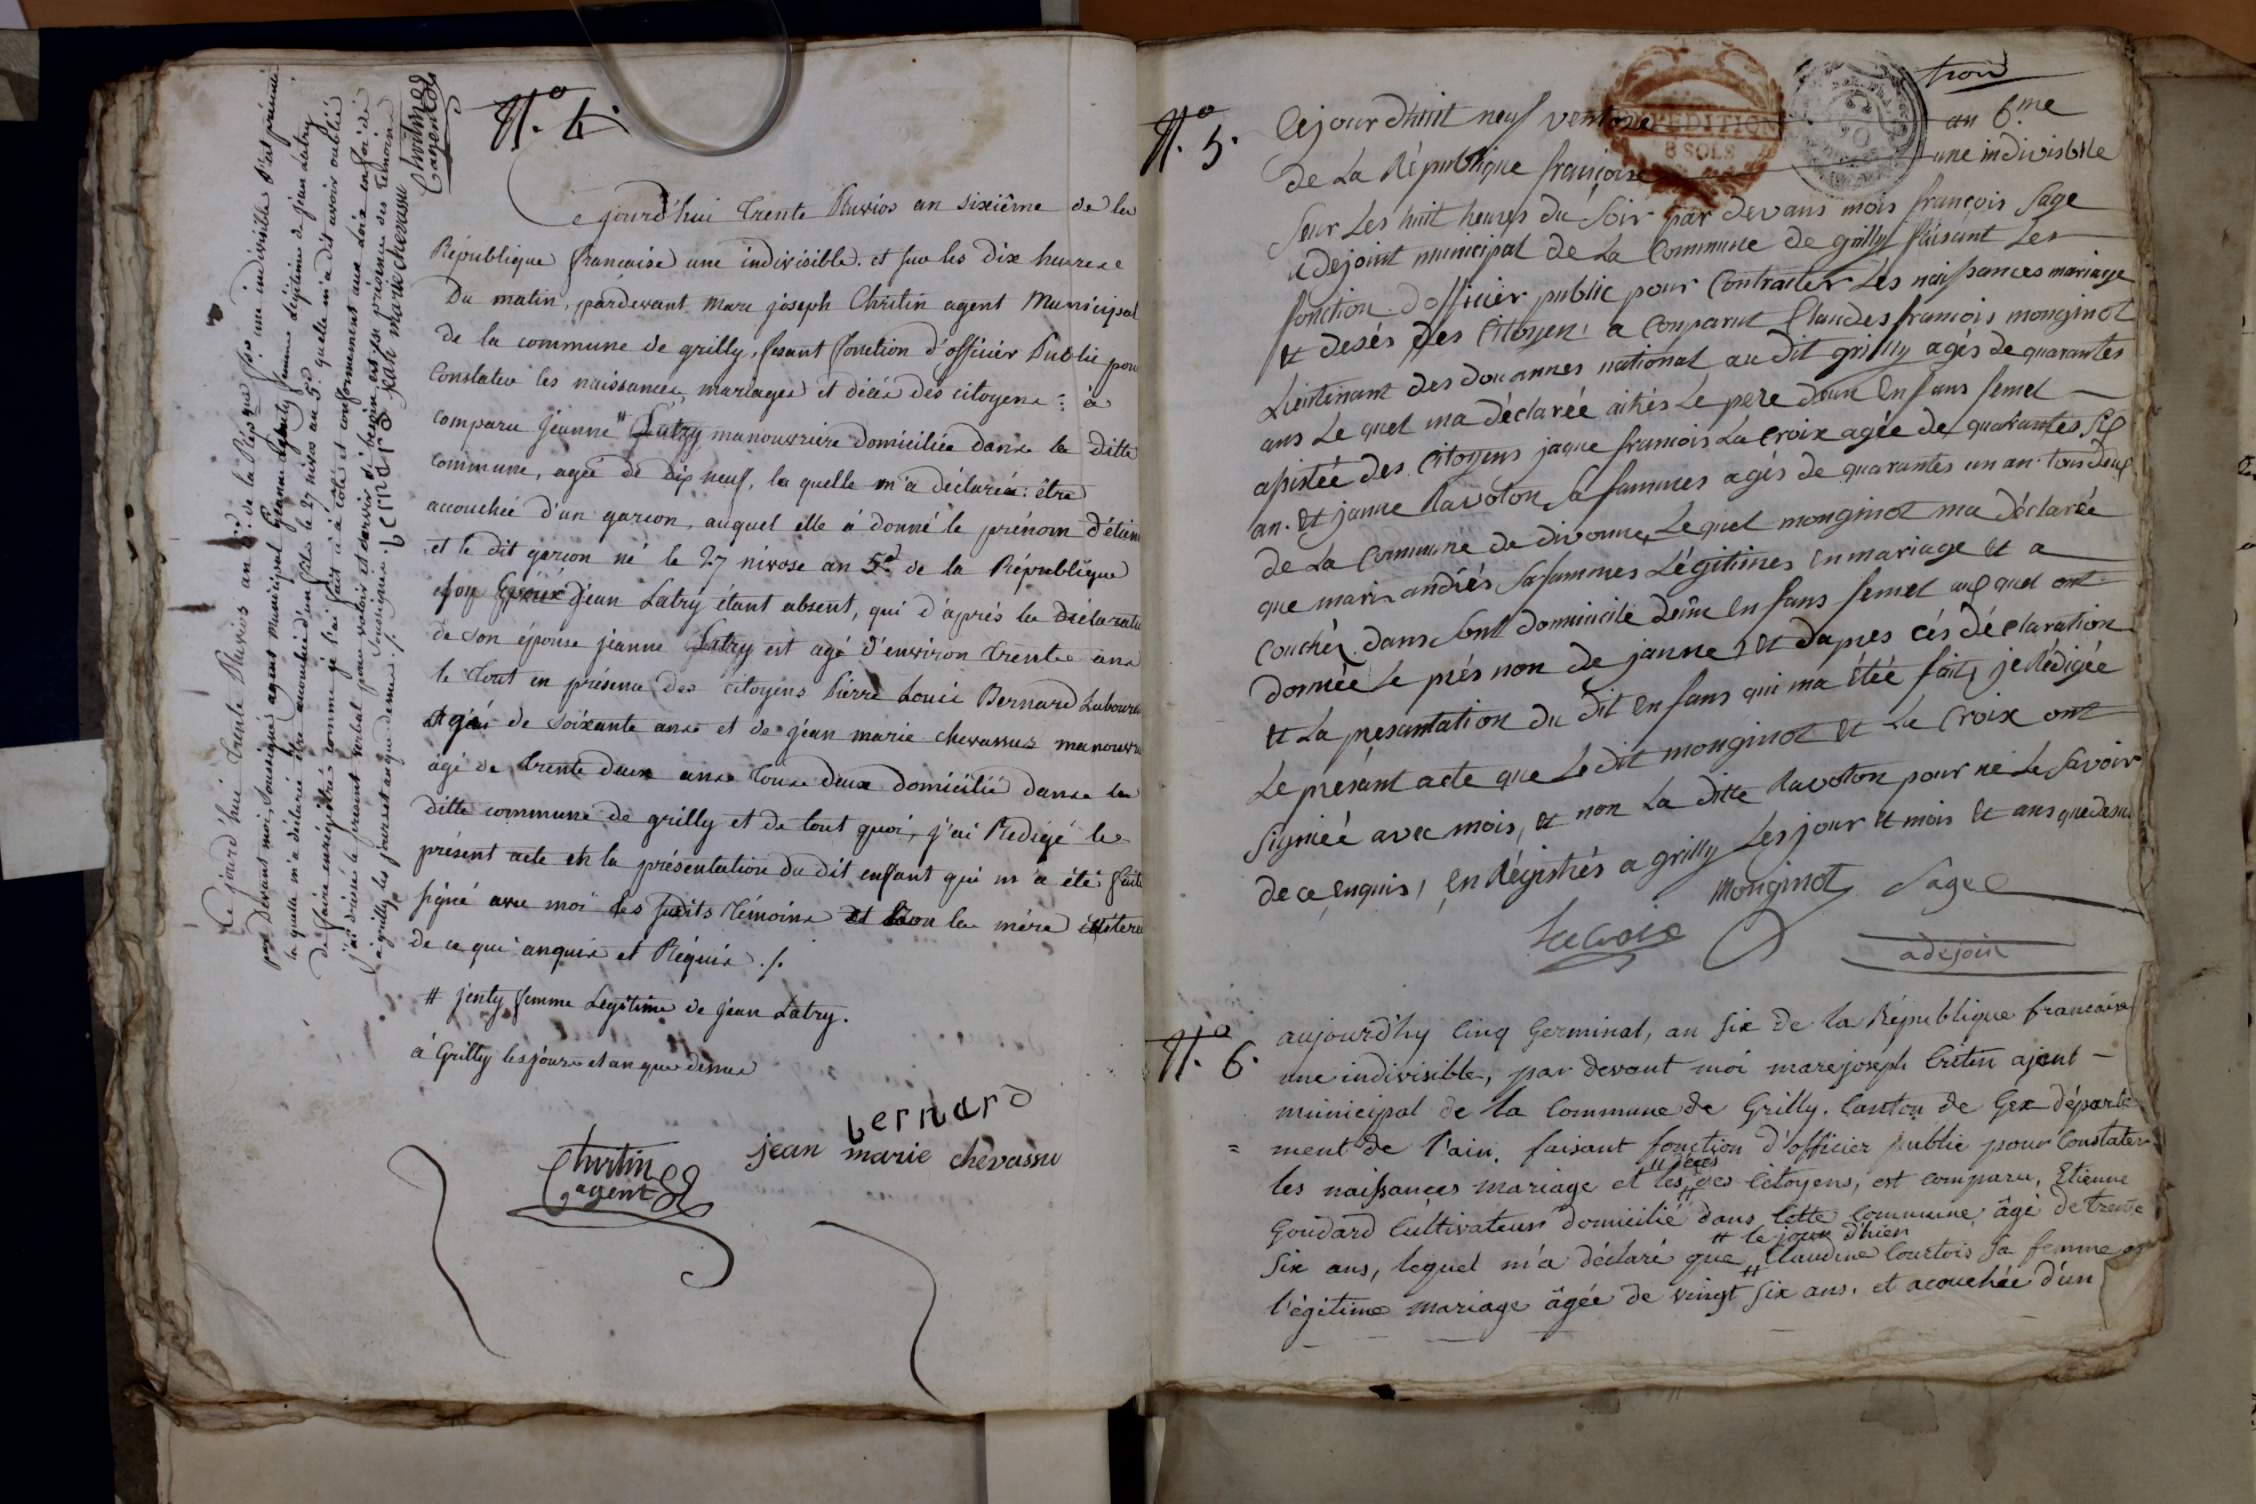 N.º 4.
Ce jourd'hui trente Pluvios an sixième de la
République francaise une indivisible. et sur les dix heures
Du matin, pardevant Marc joseph Christin agent Municipal
de la commune de grilly, fesant fonction d'officier Public pour
Constater les naissances, mariages et décès des citoyens : à
comparu Jeanne # Latry manouvriere domiciliée dans la ditte
commune, agée de dix neuf, la quelle m'a déclarée : être
accouchée d'un garcon, auquel elle à donné le prénom d'étien
et le dit garcon né le 27 nivose an 5.e de la République
son Epoux Jean Latry étant absent, qui d'après la déclarati
de son épouse jeanne Latry est agé d'environ trente ans
le tout en présence des citoyens Pierre Louis Bernard Laboure
Agé de soixante ans et de jean marie chevassus manouvr
agé de trente deux ans tous deux domicilié dans la
ditte commune de grilly et de tout quoi, j'ai Redigé le
présent acte et la présentation du dit enfant qui m'a été faite
signé avec moi les sudits témoins et non la mère
de ce qui anquis et Réquis ./.
# jenty femme Legitime de jean Latry.
à Grilly les jours et an que dessus
bernard
jean marie chevassu
Christin
agent
Ce jourd'hui trente Pluvios an de la Répque une indivisible s'est présenté
par devant moi, soussigné agent municipal Jeanne jenty femme légitime de jean Latry
la quelle m'a déclarée être accouchée d'un fils le 27 nivos an 5.e quelle m'a dit avoir oublié
de faire enrégistré comme je l'ai fait ci à côté et conformément aux loix en foi de
j'ai dressé le présent verbal pour valoir et servir si besoin est en présence des témoins
à grilly les jours et an que dessus ./. Soussignés. bernard jean marie chevassu
Christin
agent
trois
N.º 5.
Cejourdhuit neuf ventose an 6.me
EXPEDITION
8 SOLS
de La République françoise une indivisible
Sur Les huit heures du soir par devans mois françois Sage
adejoint municipal de La Commune de grilly faisant Les
fonction d'officier public pour Contracter Les naissances mariage
et desés des Citoyen a Conparut Claudes francois monginot
Lieutinant des douannes national au dit grilly agés de quarantes
ans Le quel ma déclarée aitrés Le pere d'un Enfans femel
assistée des Citoyens jaque francois La Croix agée de quarantes six
an. et janne Ravoton sa fammes agés de quarantes un an tous deux
de La Commune de divonne, Le quel monginot ma déclarée
que sa fammes Légitimes en mariage et a
Couchés dans sont domicile d'une Enfans femel auquel ont
donnée Le prés non de janne, et dapres cés déclaration
et La presantation du dit enfans qui ma étée fait, je Rédigée
Le présant acte que Le dit monginot et La Croix ont
signiéé avec mois, et non La ditte Ravoton pour ne Le savoir
de ce enquis, en Régistrés a grilly Les jour et mois et ans que desu
Monginot Sage
Lacroix
adejoin
N.º 6.
aujourd'hy Cinq Germinal, an Six de la République francaise
une indivisible, par devant moi marc joseph Critin ajent
municipal de la Commune de Grilly. Canton de Gex départe
= ment de l'ain, faisant fonction d'officier public pour Constater
" déçés
les naissances mariage et les des Citoyens, est comparu, Etienne
Goudard Cultivateur domicilié dans Cette commune, âgé de trente
# le jour d'hier
Six ans, lequel m'a déclaré que # Claudine Courtois sa femme en
l'égitime mariage âgée de vingt six ans, et acouchée d'un